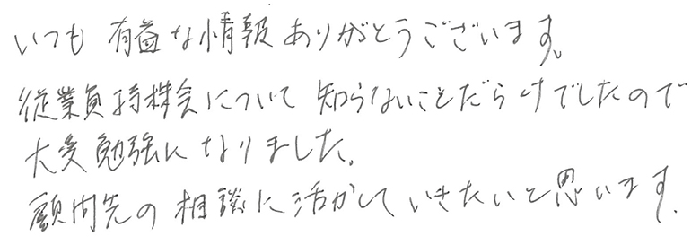 いつも有益な情報ありがとうございます。
従業員持株会について知らないことだらけでしたので
大変勉強になりました。
顧問先の相談に活かしていきたいと思います。